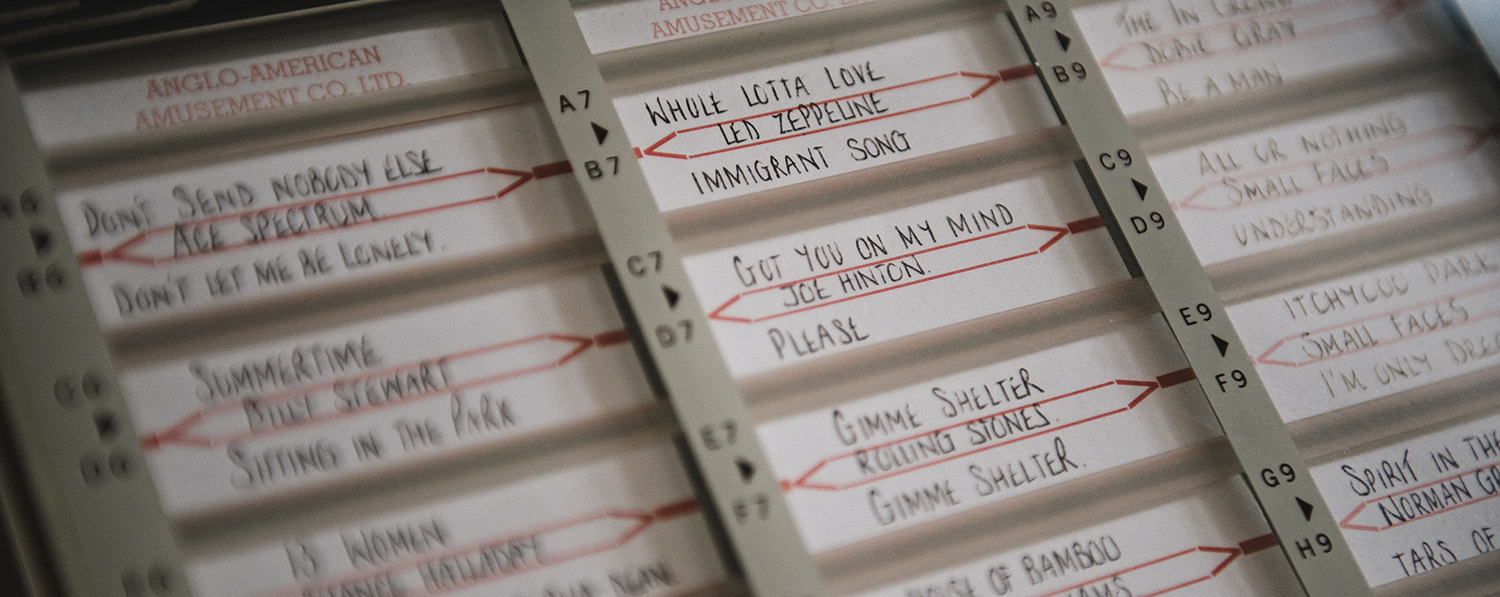 ANGLO-AMERICAN
AMUSEMENT CO. LTD.
DON'T SEND NOBODY ELSE
ACE SPECTRUM.
DON'T LET ME BE LONELY.
SUMMERTIME
BILLY STEWART
SITTING IN THE PARK
13 WOMEN
AMUSEMENT CO. LTD.
A7
B7
WHOLE LOTTA LOVE
LED ZEPPELINE
IMMIGRANT SONG
C7
D7
GOT YOU ON MY MIND
JOE HINTON.
PLEASE
E7
F7
GIMME SHELTER
ROLLING STONES.
GIMME SHELTER.
OF BAMBOO
A9
B9
THE IN CROWD
DOBIE GRAY
BE A MAN
C9
D9
ALL OR NOTHING
SMALL FACES
UNDERSTANDING
E9
F9
ITCHYCOO PARK
SMALL FACES
I'M ONLY
G9
H9
SPIRIT IN THE
NORMAN
TARS OF